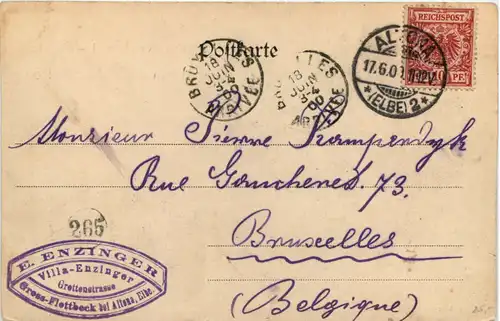 Postkarte
REICHSPOST
10 PF
ALTONA
17.6.00
(ELBE)
*2*
BRUXELLES
18
JUIN
ARRIVEE
BRUXELLES
18
JUIN
Monsieur Pierre Kampendyk
Rue Gaucheret 73.
Bruxelles
(Belgique)
265
E. ENZINGER
Villa-Enzinger
Grottenstrasse
Gross-Flottbeck bei Altona, Elbe.